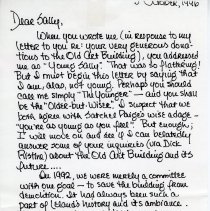 October, 1996
Dear Sally,
When you wrote me (in response to my
letter to you re: your very generous dona-
tions to the Old Art Building), you addressed
me as "Young Sally." That was so flattering!
But I must begin this letter by saying that
I am, alas, not young. Perhaps you should
call me simply "The Younger" — and you shall
be the "Older-but-Wiser." I suspect that we
both agree with Satchel Paige's wise adage -
"you're as young as you feel". But enough;
I will move on and see if I can belatedly
answer some of your inquiries (via Dick
) about the Old Art Building and its
future....
In 1992, we were merely a committee
with one goal — to save the building from
demolition. It had always been such a
part of Leland's history and its ambiance.